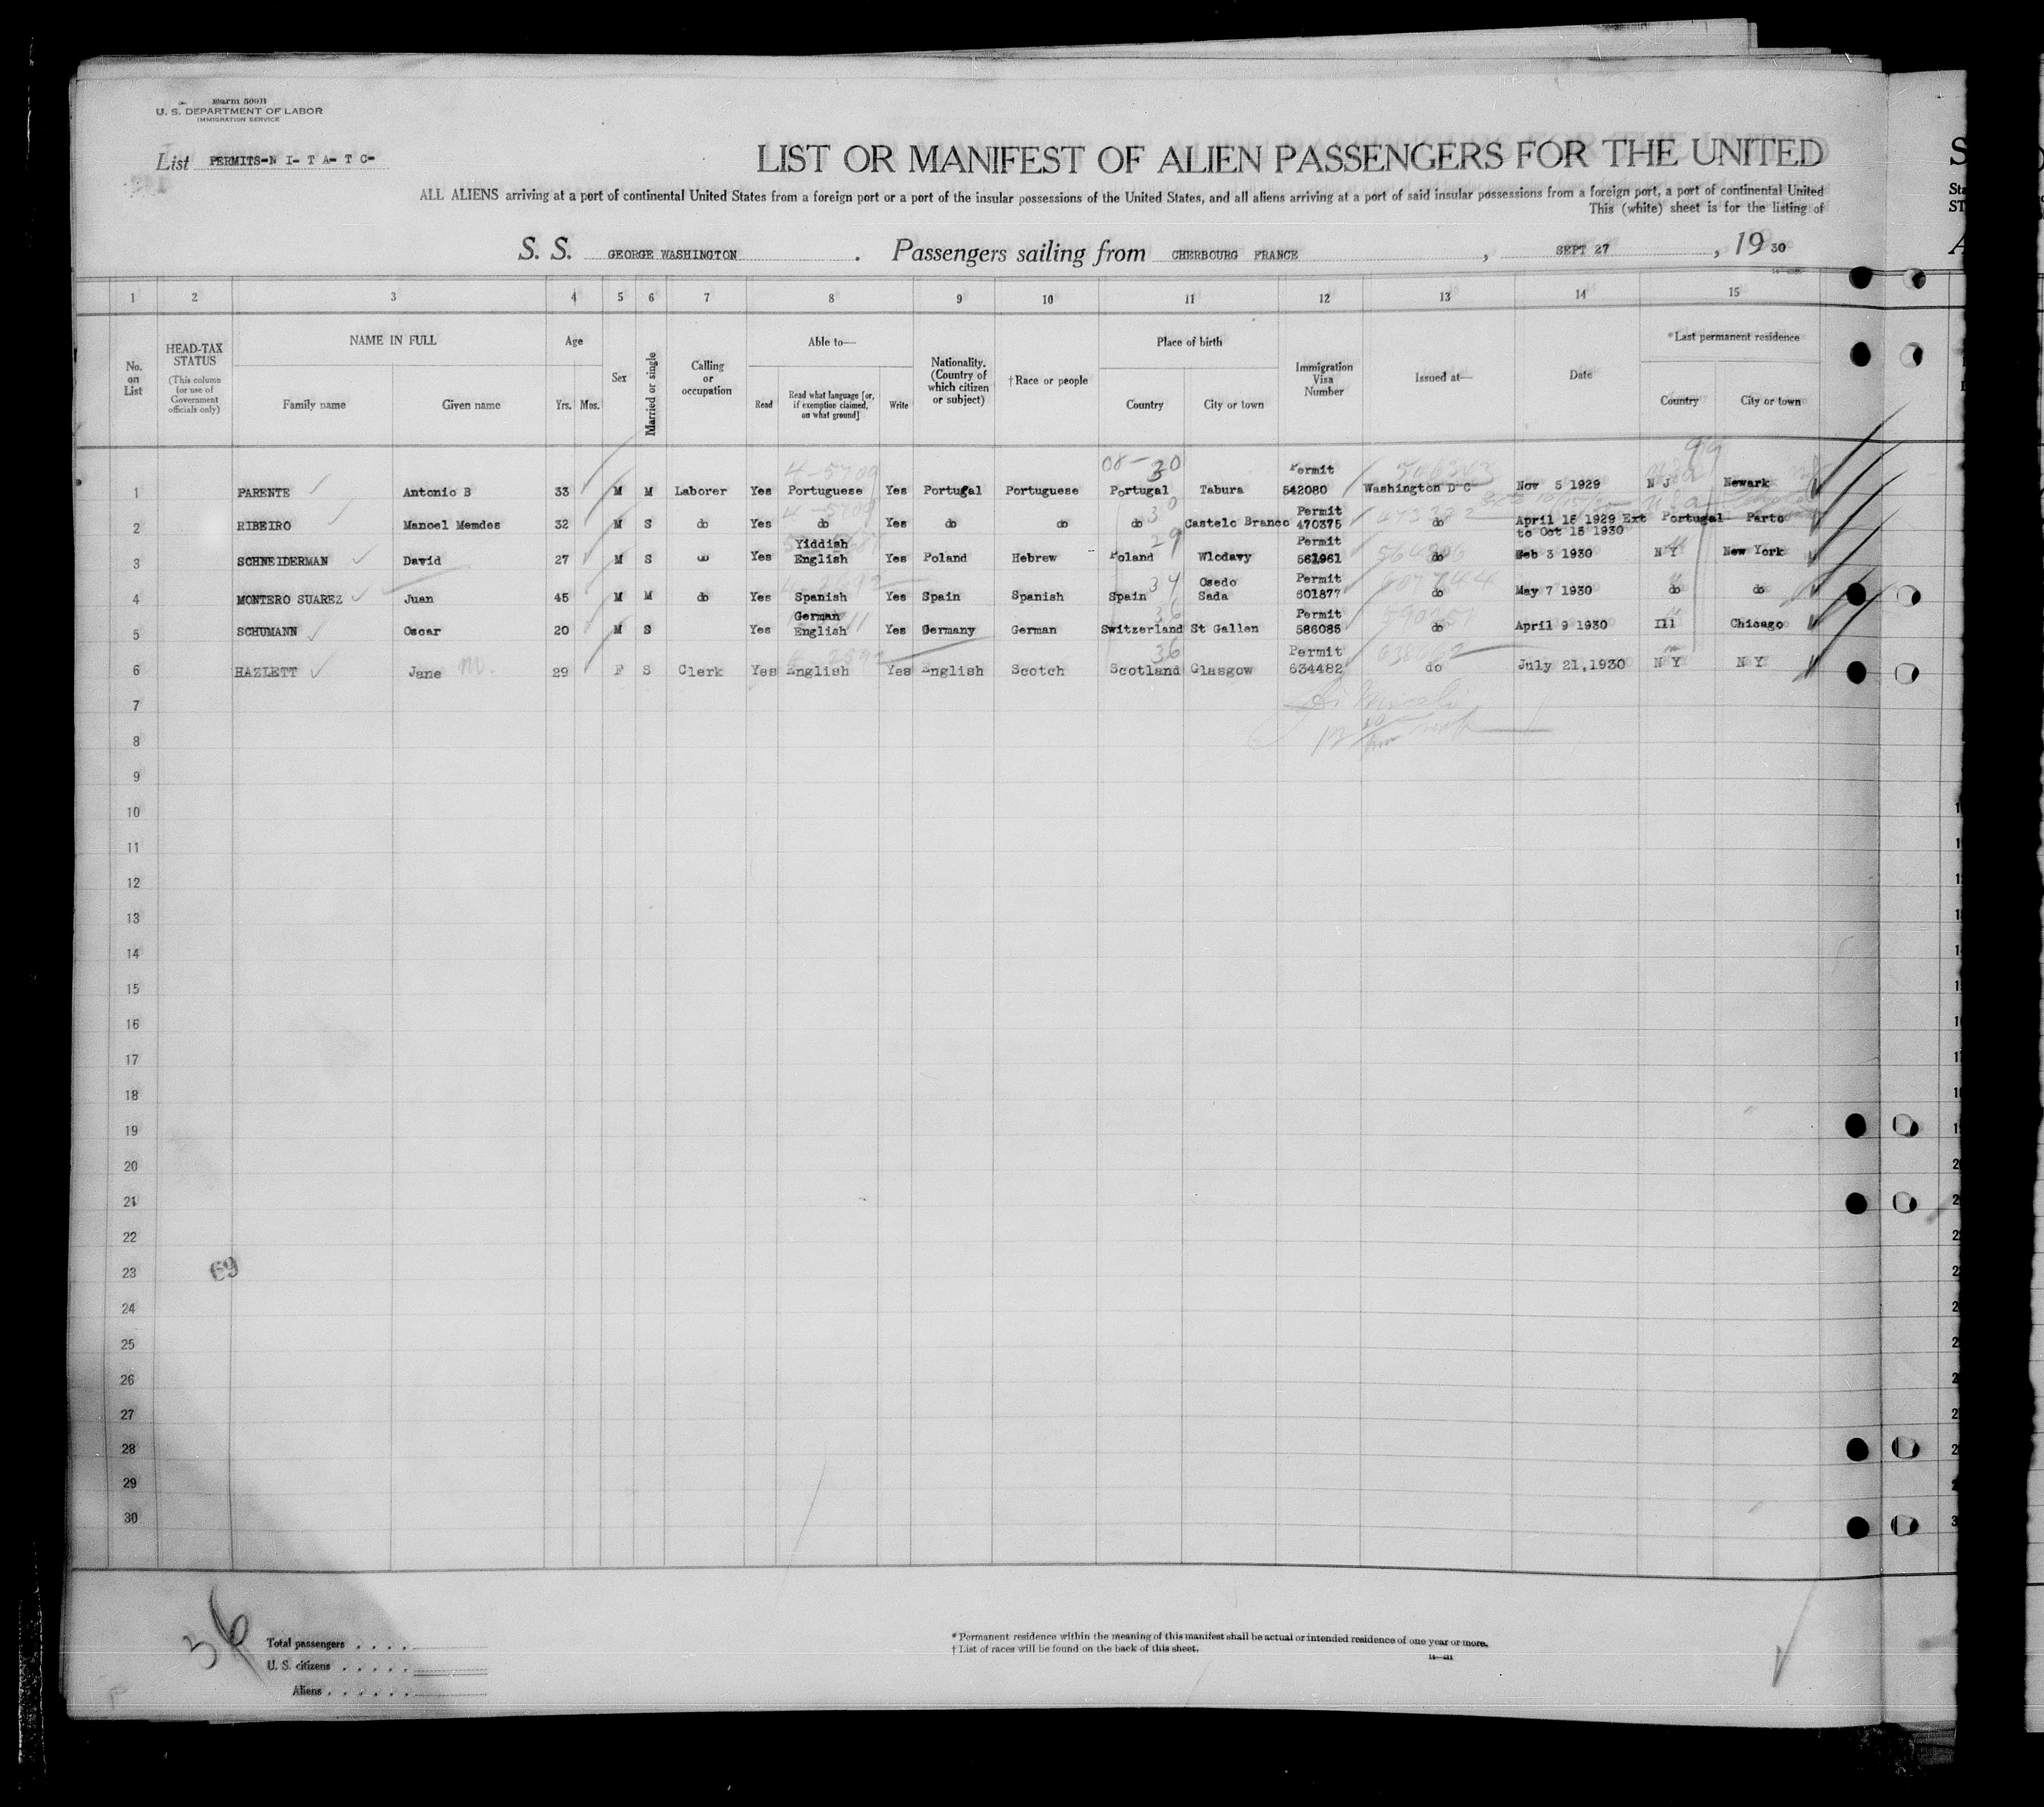 Form 500B
U. S. DEPARTMENT OF LABOR
IMMIGRATION SERVICE
List PERMITS-N I- T A- T C-
LIST OR MANIFEST OF ALIEN PASSENGERS FOR THE UNITED
ALL ALIENS arriving at a port of continental United States from a foreign port or a port of the insular possessions of the United States, and all aliens arriving at a port of said insular possessions from a foreign port, a port of continental United
This (white) sheet is for the listing of
S. S. GEORGE WASHINGTON . Passengers sailing from CHERBOURG FRANCE , SEPT 27 , 19 30
1 2 3 4 5 6 7 8 9 10 11 12 13 14 15
No. on List
HEAD-TAX STATUS
(This column for use of Government officials only)
NAME IN FULL
Family name Given name
Age
Yrs. Mos.
Sex
Married or single
Calling or occupation
Able to—
Read
Read what language [or, if exemption claimed, on what ground]
Write
Nationality. (Country of which citizen or subject)
†Race or people
Place of birth
Country City or town
Immigration Visa Number
Issued at—
Date
*Last permanent residence
Country City or town
1 PARENTE Antonio B 33 M M Laborer Yes Portuguese Yes Portugal Portuguese Portugal Tabura Permit 542080 Washington D C Nov 5 1929 N J Newark
2 RIBEIRO Manoel Memdes 32 M S do Yes do Yes do do do Castelo Branco Permit 470375 do April 15 1929 Ext to Oct 15 1930 Portugal Parto
3 SCHNEIDERMAN David 27 M S do Yes Yiddish English Yes Poland Hebrew Poland Wlodavy Permit 561961 do Feb 3 1930 N Y New York
4 MONTERO SUAREZ Juan 45 M M do Yes Spanish Yes Spain Spanish Spain Osedo Sada Permit 601877 do May 7 1930 do do
5 SCHUMANN Oscar 20 M S Yes German English Yes Germany German Switzerland St Gallen Permit 586085 do April 9 1930 Ill Chicago
6 HAZLETT Jane M. 29 F S Clerk Yes English Yes English Scotch Scotland Glasgow Permit 634482 do July 21,1930 N Y N Y
7
8
9
10
11
12
13
14
15
16
17
18
19
20
21
22
23 69
24
25
26
27
28
29
30
36
Total passengers . . . .
U. S. citizens . . . . .
Aliens . . . . . .
* Permanent residence within the meaning of this manifest shall be actual or intended residence of one year or more.
† List of races will be found on the back of this sheet.